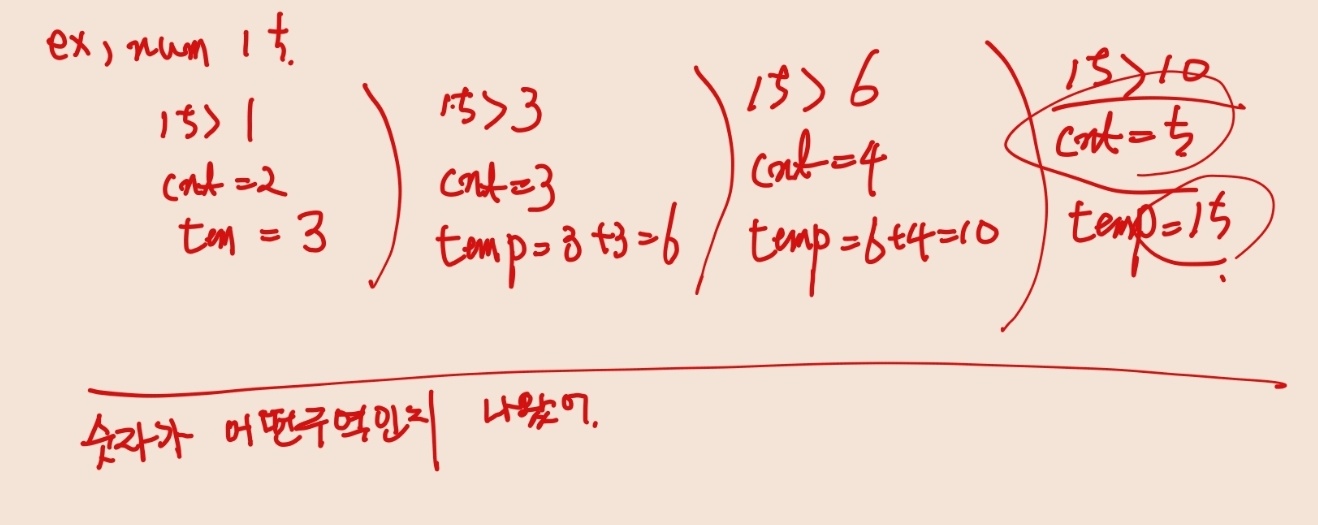 ex, num 15.
15 > 1
cnt = 2
tem = 3
15 > 3
cnt = 3
temp = 3 + 3 = 6
15 > 6
cnt = 4
temp = 6 + 4 = 10
15 > 10
cnt = 5
temp = 15.
숫자가 어떤구역인지 나왔어.